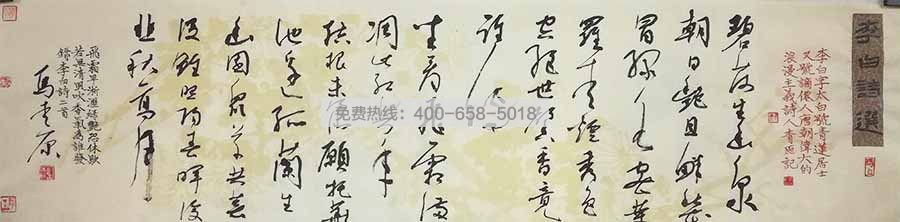 李白詩選
李白字太白號青蓮居士
又號謫僊人唐朝偉大的
浪漫主義詩人
碧荷生幽泉
朝日艷且鮮秋花
冒綠水密葉
羅青煙秀色
空絕世馨香竟
誰傳
坐看飛霜滿
凋此紅芳年
結根未得所願托華
池邊孤蘭生
幽園眾草共蕪
沒雖照陽春暉復
悲秋高月
飛霜早淅瀝綠艷恐休歇
若無清風吹香氣為誰發
錄李白詩二首
免费热线：400-658-5018